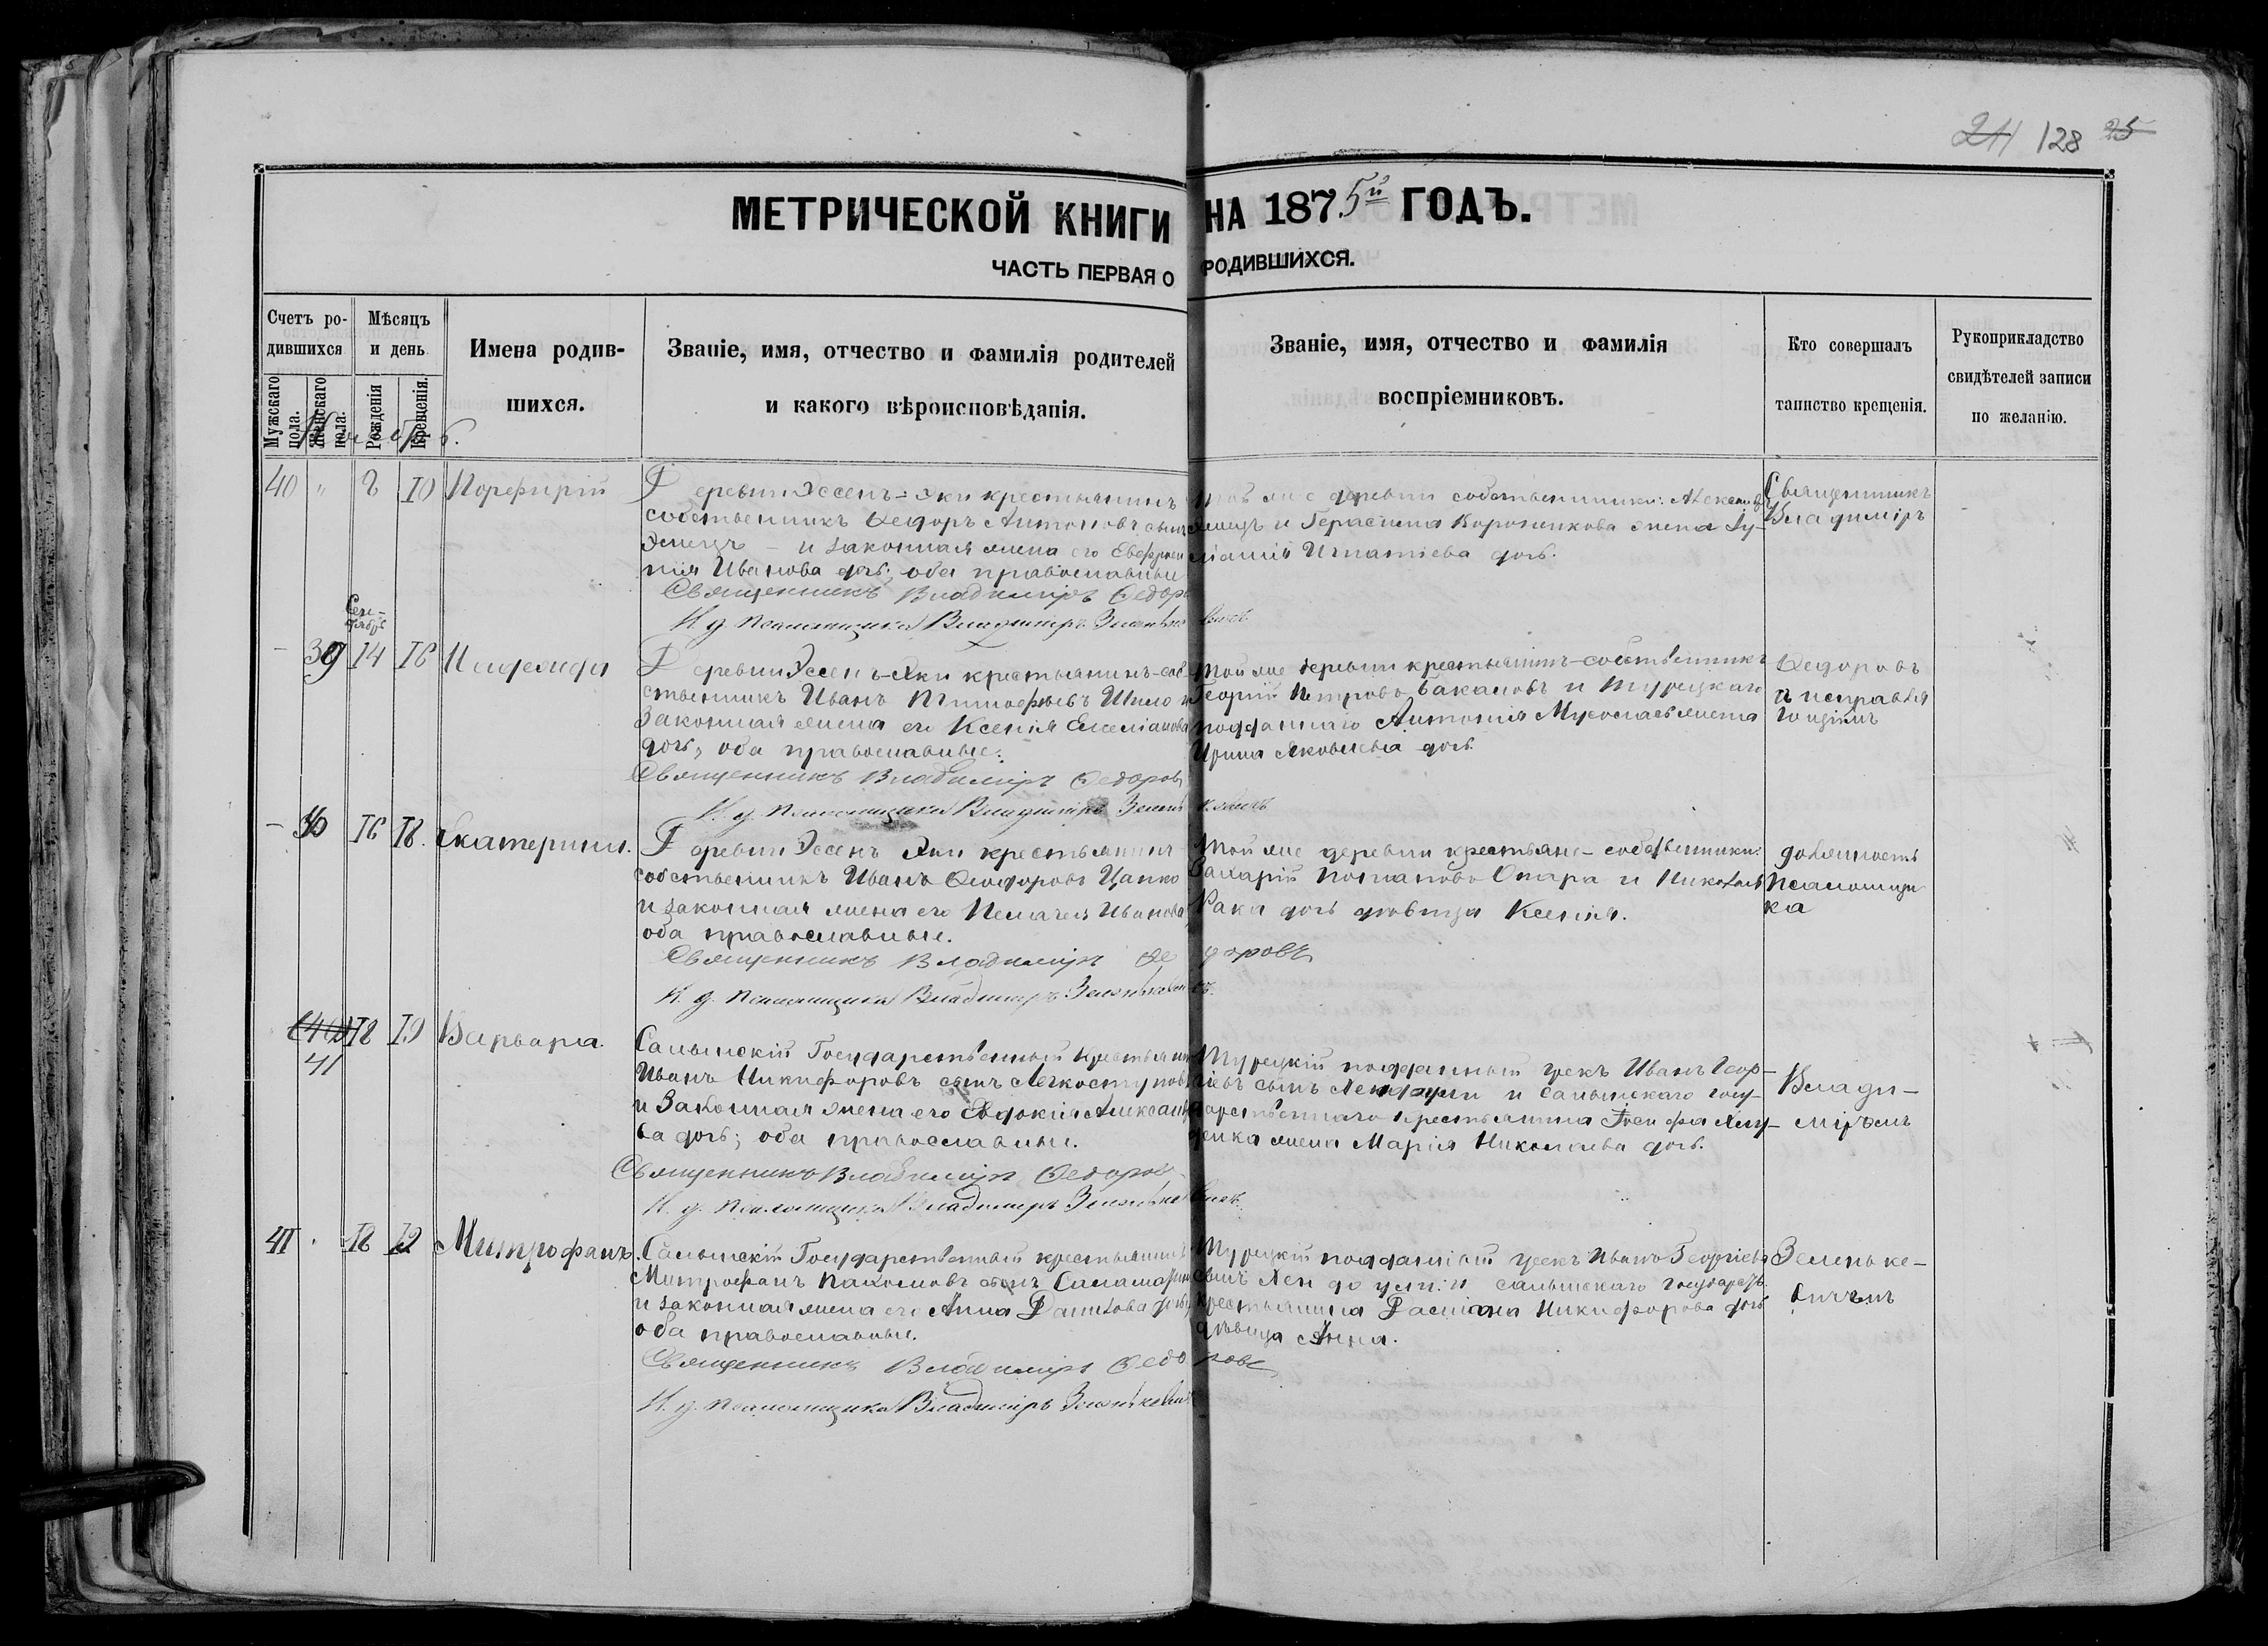 24 128 25
МЕТРИЧЕСКОЙ КНИГИ НА 1875й ГОДЪ.
ЧАСТЬ ПЕРВАЯ О РОДИВШИХСЯ.
Счетъ ро-
дившихся
Мужскаго пола.
Женскаго пола.
Мѣсяцъ
и день
Рожденія
Крещенія.
Имена родив-
шихся.
Званіе, имя, отчество и фамилія родителей
и какого вѣроисповѣданія.
Званіе, имя, отчество и фамилія
воспріемниковъ.
Кто совершалъ
таинство крещенія.
Рукоприкладство
свидѣтелей записи
по желанію.
40 " 8 10 Порфирій
Деревни Эссенъ-Эки крестьянинъ
собственникъ Ѳедоръ Антоновъ сынъ
и законная жена его Евфроси
нія Иванова дочь, оба православные
Священникъ Владиміръ Ѳедоровъ
И. д. псаломщика Владиміръ Зеленькевичъ
той же деревни собственники:
и Герасима жена
Игнатіева дочь.
Священникъ
Владиміръ
Сен-
тябрь
- 39 14 18
Деревни Эссенъ-Эки крестьянинъ-соб
ственникъ Иванъ Тимоѳеевъ Шило и
законная жена его Ксенія Емеліанова
дочь, оба православные.
Священникъ Владиміръ Ѳедоровъ
И. д. псаломщика Владиміръ Зеленькевичъ
той же деревни крестьянинъ-собственникъ
Георгій Петровъ Бакаловъ и турецкаго
подданнаго Антонія жена
Ирина Яковлева дочь.
Ѳедоровъ
съ исправля
ющимъ
- 16 18. Екатерина.
Деревни Эссенъ Эки крестьянинъ
собственникъ Иванъ Ѳеодоровъ Цапко
и законная жена его Пелагея Иванова,
оба православные.
Священникъ Владиміръ Ѳедоровъ
И. д. псаломщика Владиміръ Зеленькевичъ.
Той же деревни крестьяне-собственники:
Захарій Потаповъ и Николая
Рака дочь дѣвица Ксенія.
должность
псаломщи
ка
41 18 19 Варвара.
Салынскій Государственный крестьянинъ
Иванъ Никифоровъ сынъ Легкоступовъ
и законная жена его Евдокія Алексан
ва дочь; оба православные.
Священникъ Владиміръ Ѳедоровъ
И. д. псаломщика Владиміръ Зеленькевичъ.
Турецкій подданный грекъ Иванъ Геор-
гіевъ сынъ и салынскаго госу-
дарственнаго крестьянина Іосифа
жена Марія Николаева дочь.
Влади-
міромъ
41 18 19 Митрофанъ.
Салынскій Государственный крестьянинъ
Митрофанъ Пахомовъ сынъ
и законная жена его Анна Данилова дочь,
оба православные.
Священникъ Владиміръ Ѳедоровъ
И. д. псаломщика Владиміръ Зеленькевичъ
Турецкій подданный грекъ Иванъ Георгіевъ
сынъ и салынскаго государств.
крестьянина Никифорова дочь
дѣвица Анна.
Зеленьке-
вичемъ